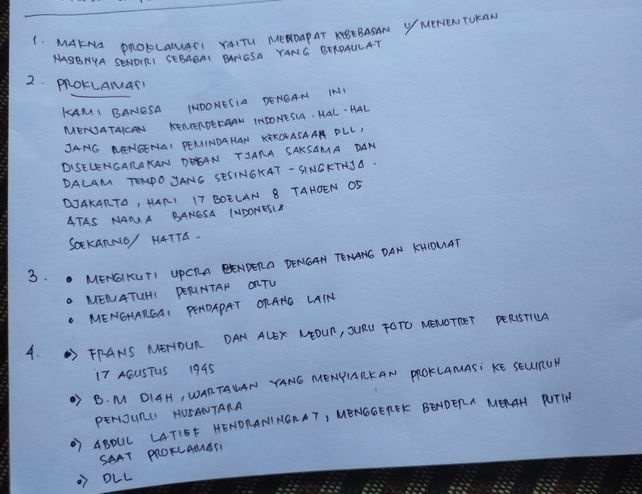 1. MAKNA PROKLAMASI YAITU MENDAPAT KEBEBASAN U/ MENENTUKAN
NASIBNYA SENDIRI SEBAGAI BANGSA YANG BERDAULAT
2. PROKLAMASI
KAMI BANGSA INDONESIA DENGAN INI
MENJATAKAN KEMERDEKAAN INDONESIA. HAL-HAL
JANG MENGENAI PEMINDAHAN KEKOEASAAN DLL,
DISELENGARAKAN DEGAN TJARA SAKSAMA DAN
DALAM TEMPO JANG SESINGKAT-SINGKTNJA.
DJAKARTA, HARI 17 BOELAN 8 TAHOEN 05
ATAS NAMA BANGSA INDONESIA
SOEKARNO/ HATTA.
3. • MENGIKUTI UPCRA BENDERA DENGAN TENANG DAN KHIDMAT
• MEMATUHI PERINTAH ORTU
• MENGHARGAI PENDAPAT ORANG LAIN
4. •) FRANS MENDUR DAN ALEX MEDUR, JURU FOTO MEMOTRET PERISTIWA
17 AGUSTUS 1945
•) B.M DIAH, WARTAWAN YANG MENYIARKAN PROKLAMASI KE SELURUH
PENJURU NUSANTARA
•) ABDUL LATIEF HENDRANINGRAT, MENGGEREK BENDERA MERAH PUTIH
SAAT PROKLAMASI
•) DLL